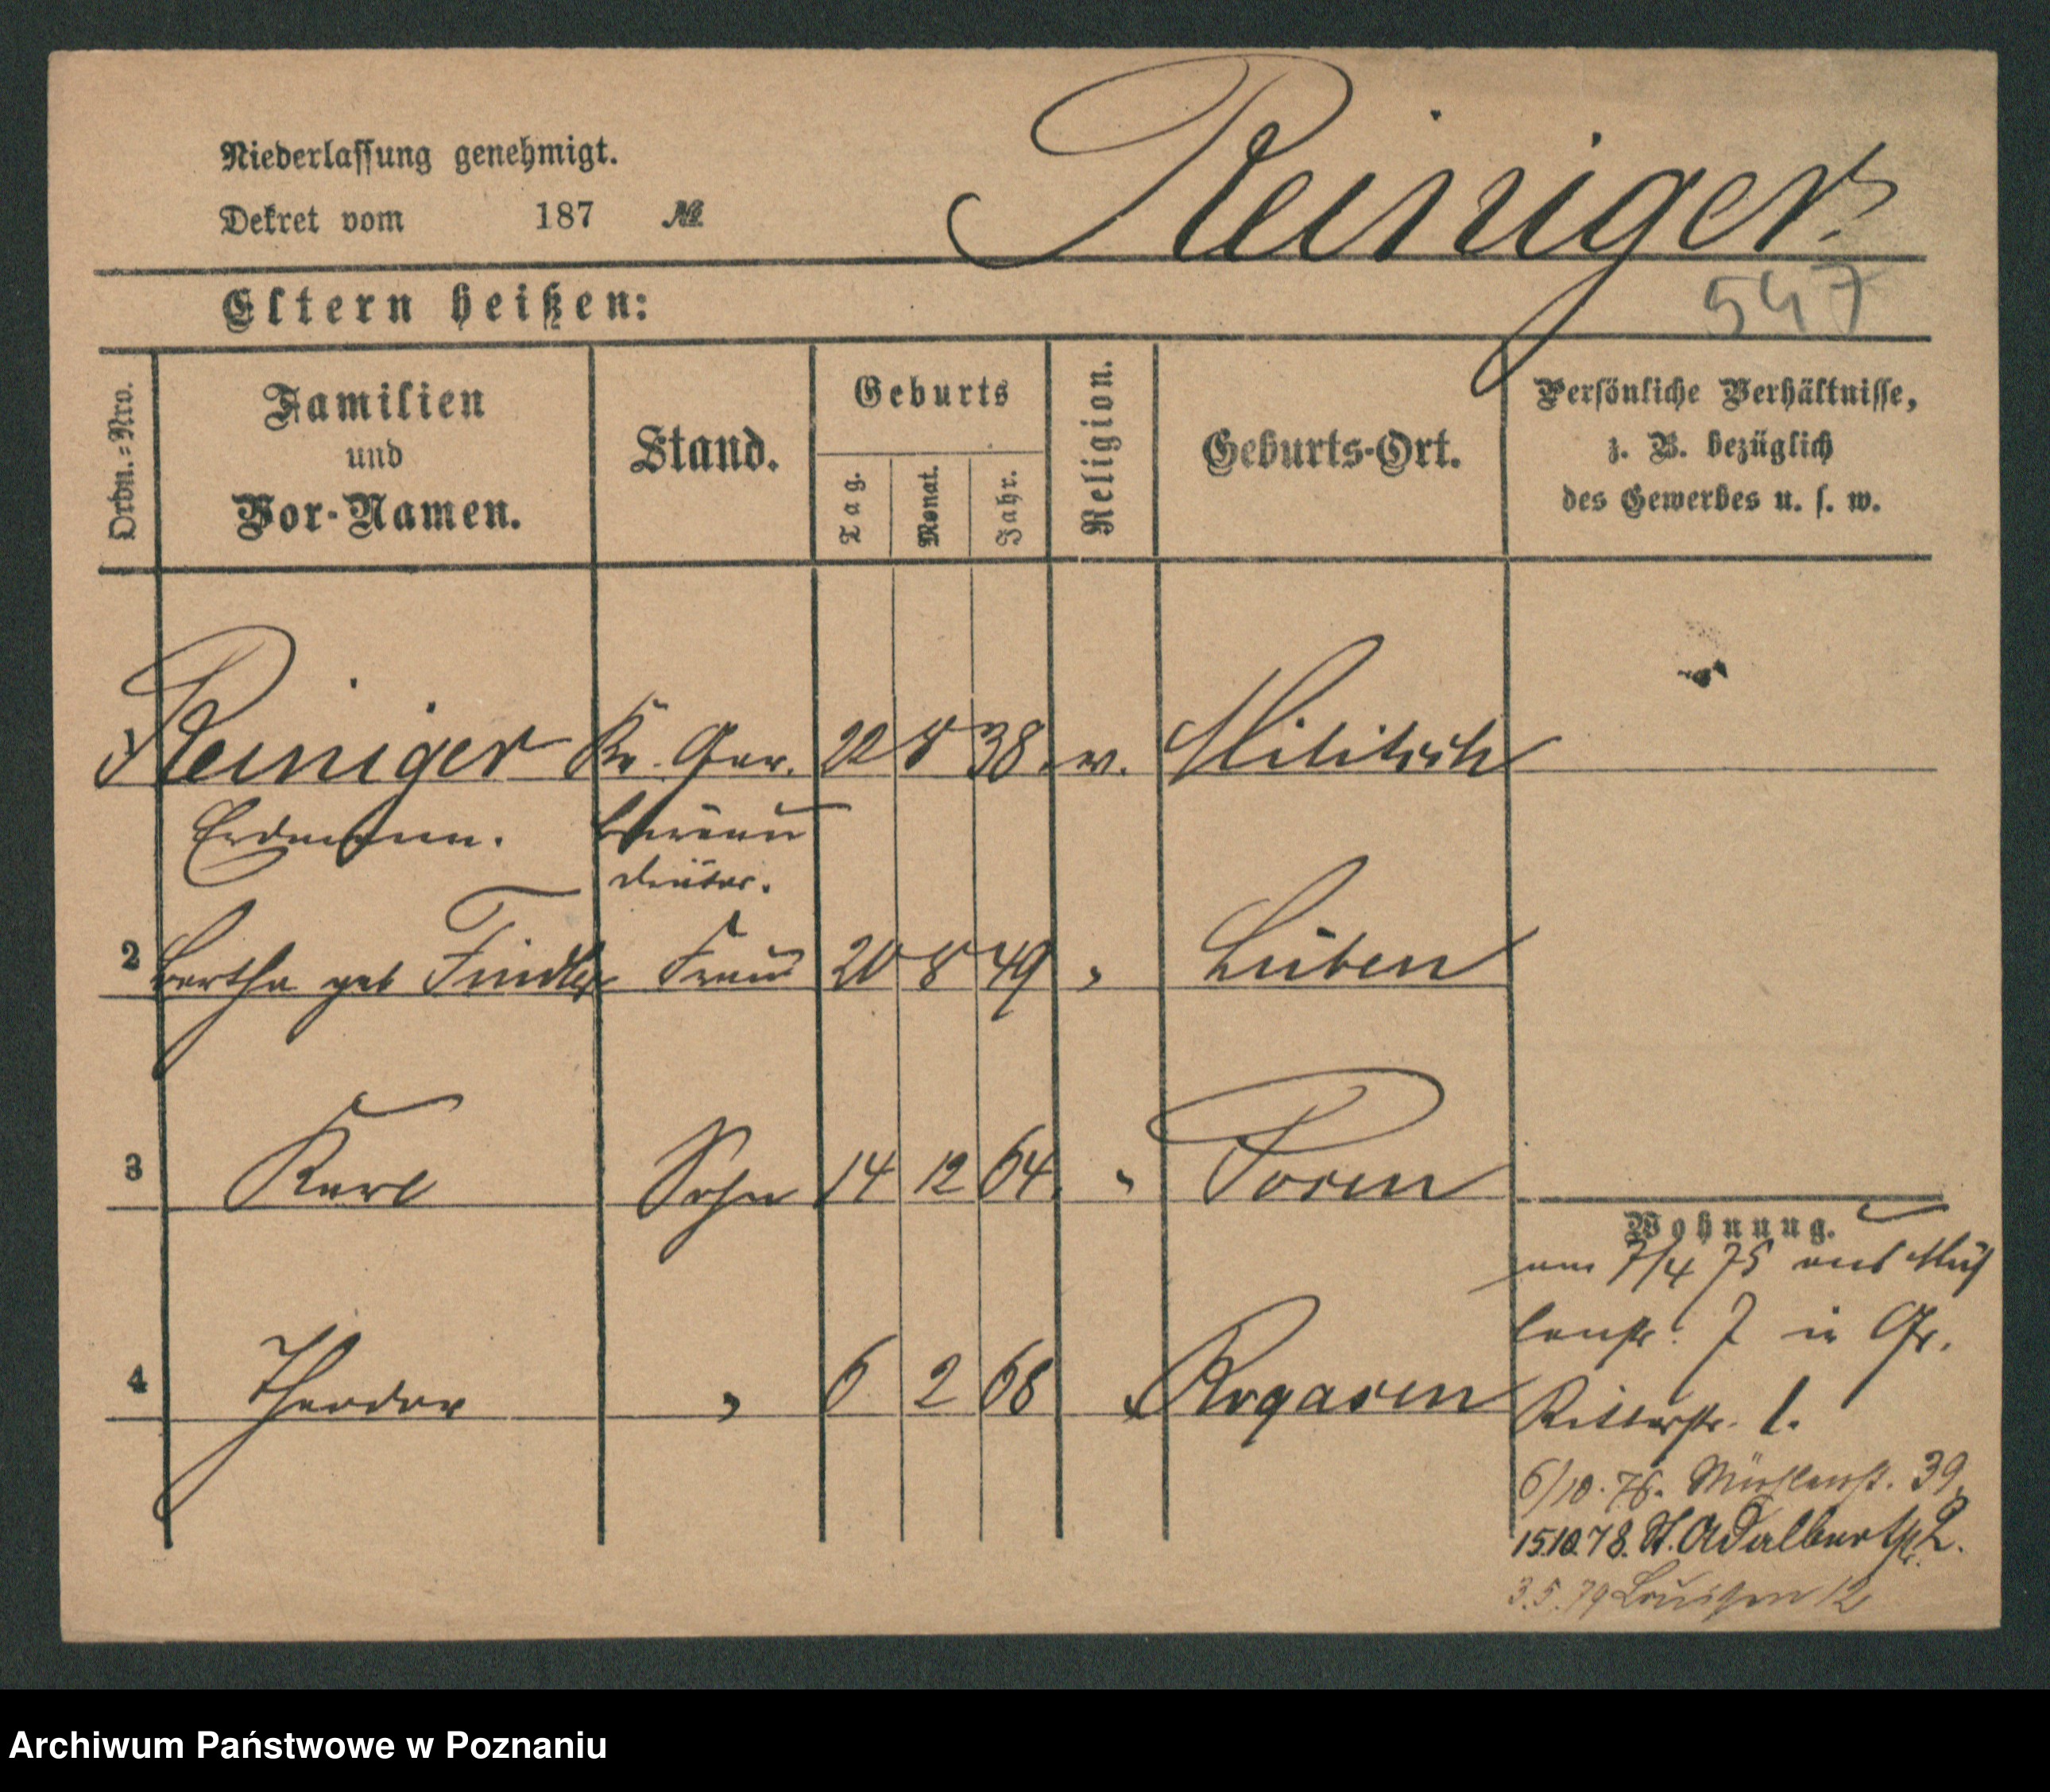 Niederlassung genehmigt.
Dekret vom 187 №
Reiniger.
547
Eltern heißen:
Ordn.-Nro.
Familien
und
Vor-Namen.
Stand.
Geburts
Tag.
Monat.
Jahr.
Religion.
Geburts-Ort.
Persönliche Verhältnisse,
z. B. bezüglich
des Gewerbes u. s. w.
1 Reiniger Kr. Ger. 22 8 38. ev. Militsch
Erdmann. Büreau
2 Bertha geb Frau 20 8 49 " Lüben
3 Karl Sohn 14 12 64. " Posen
4 Theodor " 6 2 68 " Rogasen
Wohnung.
am 7/4 75 aus Müh
lenstr. 7 in Gr.
Ritterstr. 1.
6/10. 76. Mühlenst. 39.
15.10.78. St. Adalbertstr. 2.
3.5.79 Louisen 12
Archiwum Państwowe w Poznaniu